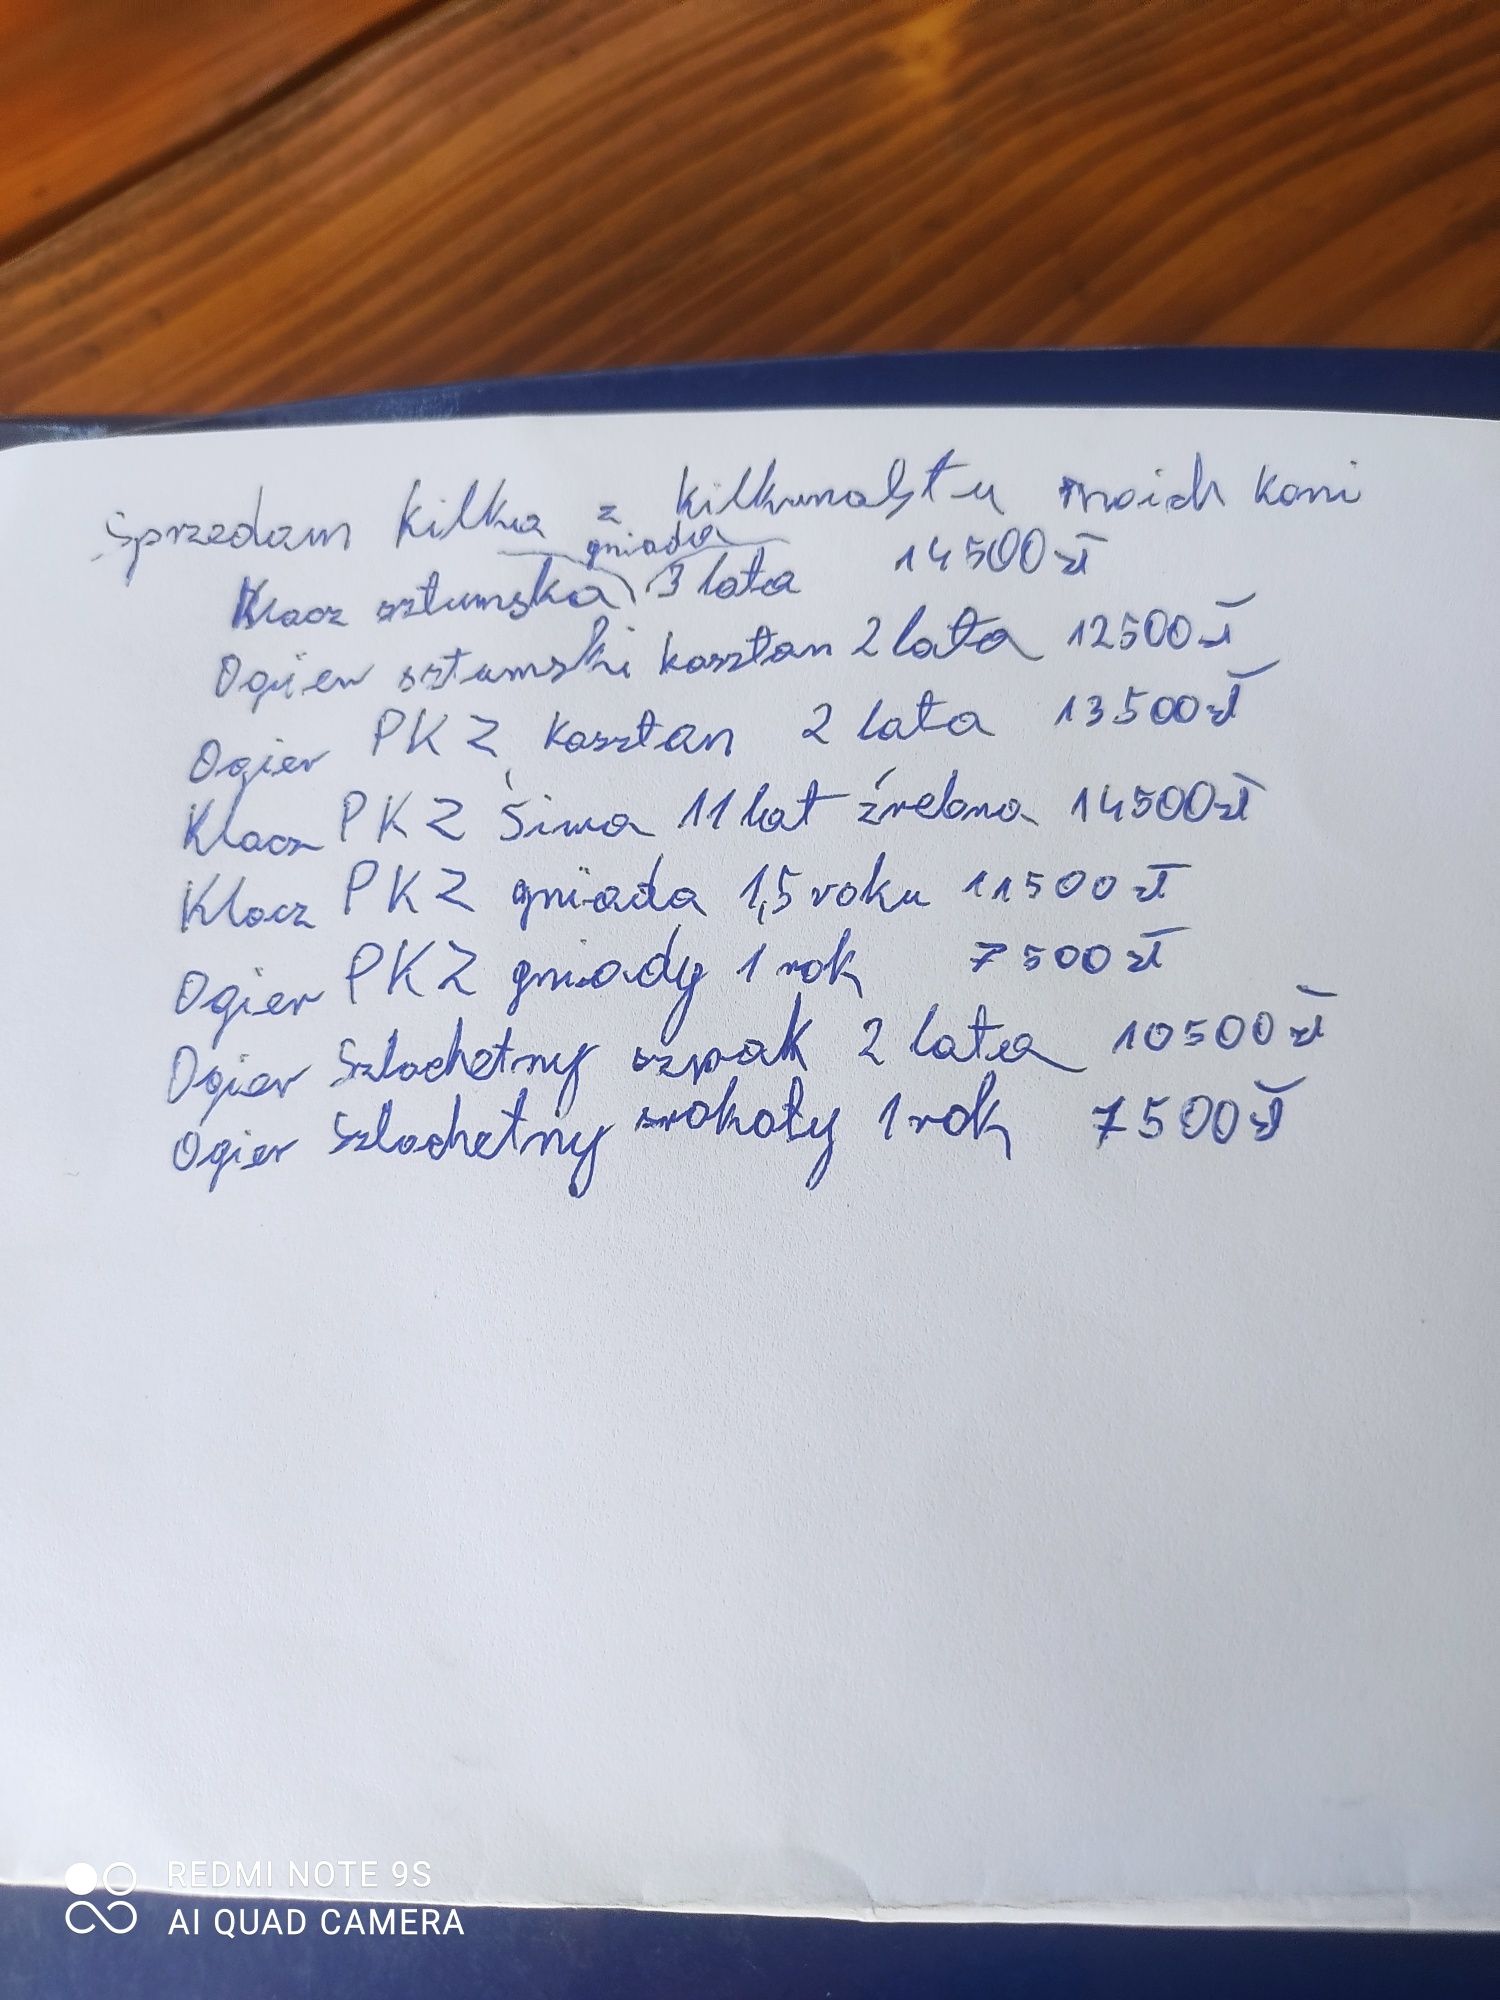 Sprzedam kilka z kilkunastu moich koni
Klacz sztumska gniada 3 lata 14500 zł
Ogier sztumski kasztan 2 lata 12500 zł
Ogier PKZ kasztan 2 lata 13500 zł
Klacz PKZ Śiwa 11 lat źrebna 14500 zł
Klacz PKZ gniada 1,5 roku 11500 zł
Ogier PKZ gniady 1 rok 7500 zł
Ogier Szlachetny szpak 2 lata 10500 zł
Ogier Szlachetny srokaty 1 rok 7500 zł
REDMI NOTE 9S
AI QUAD CAMERA